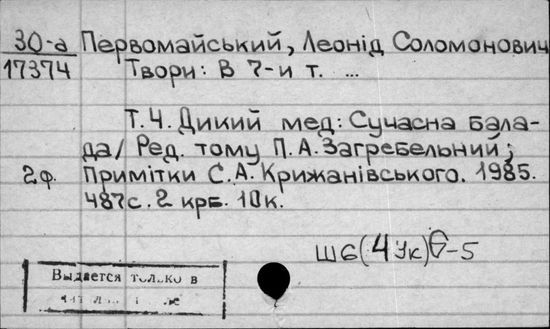 30-а Первомайський, Леонід Соломонович
17374 Твори: В 7-и т. ...
Т.4. Дикий мед: Сучасна бала-
да/ Ред. тому П.А.Загребельний;
2ф. Примітки С.А.Крижанівського. 1985.
487с. 2 крб. 10к.
Ш6(4Ук)6-5
Выдается только в